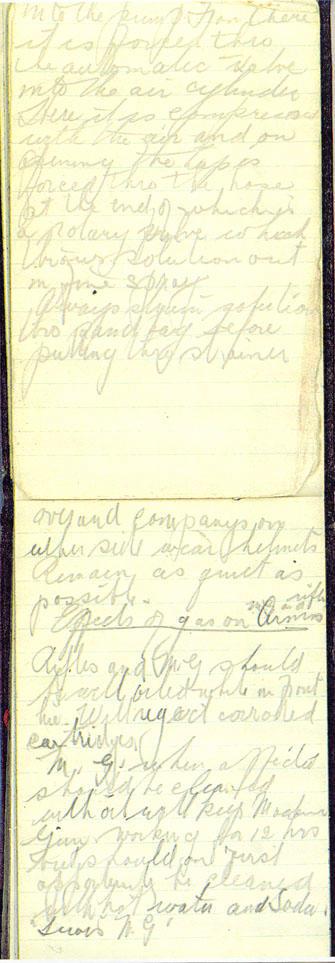 into the pump. From there
it is forced thro
the automatic valve
into the air cylinder
where it is compressed
with the air and on
opening the tap is
forced thro the hose
at the end of which is
a rotary valve which
throws solution out
in fine spray
Always strain solution
thro sand bag before
putting thro strainer
and companys on
either side wear helmets
Remain as quiet as
possible.
Effects of gas on Arms
Rifles and M.G should
be well oiled while in front
line. Will reject corroded
cartridges
M. G. when affected
should be cleaned
with oil will keep Machine
Gun working for 12 hrs
but should on first
opportunity be cleaned
with hot water and Soda.
"Lewis M G"